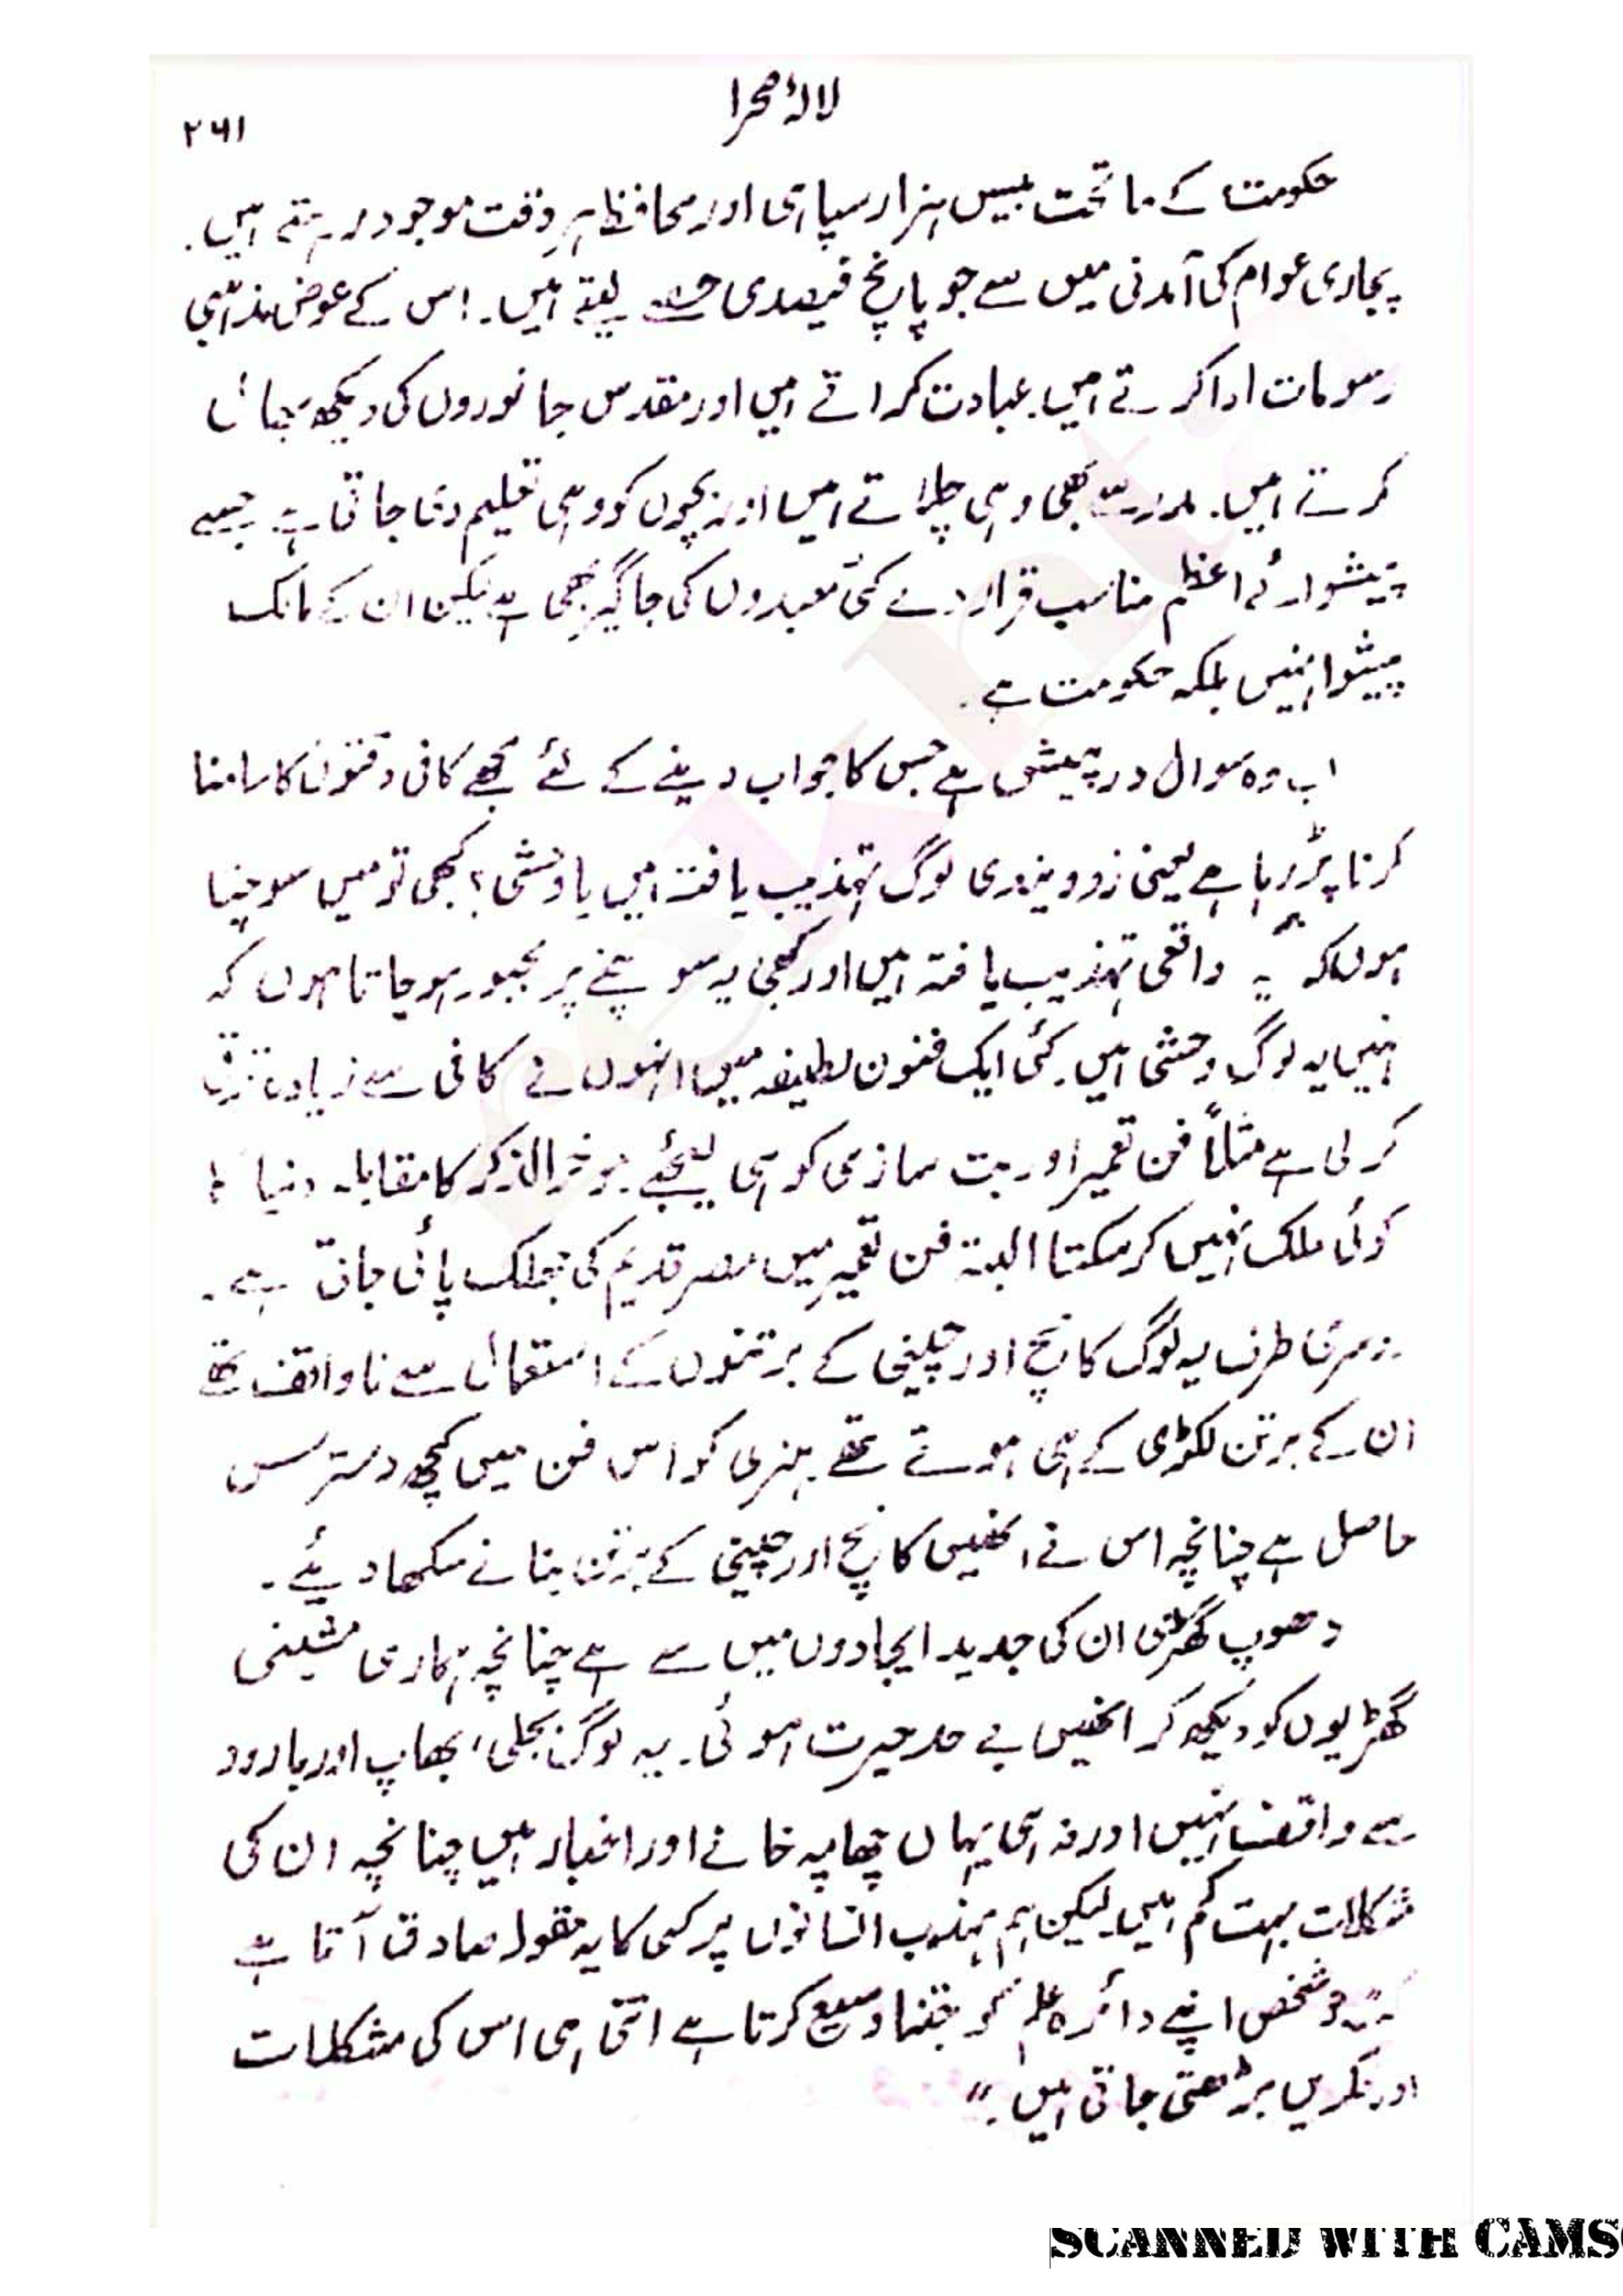 لالۂ صحرا
۲۶۱
حکومت کے ماتحت بیس ہزار سپاہی اور محافظ ہر وقت موجود رہتے ہیں۔
پجاری عوام کی آمدنی میں سے جو پانچ فیصدی حصہ لیتے ہیں۔ اس کے عوض مذہبی
رسومات ادا کرتے ہیں۔ عبادت کراتے ہیں اور مقدس جانوروں کی دیکھ بھال
کرتے ہیں۔ مدرسے بھی وہی چلاتے ہیں اور بچوں کو وہی تعلیم دی جاتی ہے جسے
پیشوائے اعظم مناسب قرار دے کئی معبدوں کی جاگیر بھی ہے لیکن ان کے مالک
پیشوا نہیں بلکہ حکومت ہے۔
اب وہ سوال درپیش ہے جس کا جواب دینے کے لئے مجھے کافی دقتوں کا سامنا
کرنا پڑ رہا ہے یعنی زوویزوی لوگ تہذیب یافتہ ہیں یا وحشی؟ کبھی تو میں سوچتا
ہوں کہ یہ واقعی تہذیب یافتہ ہیں اور کبھی یہ سوچنے پر مجبور ہو جاتا ہوں کہ
نہیں یہ لوگ وحشی ہیں۔ کئی ایک فنون لطیفہ میں انہوں نے کافی سے زیادہ ترقی
کر لی ہے مثلاً فن تعمیر اور بت سازی کو ہی لیجئے موخر الذکر کا مقابلہ دنیا کا
کوئی ملک نہیں کر سکتا البتہ فن تعمیر میں مصر قدیم کی جھلک پائی جاتی ہے۔
دوسری طرف یہ لوگ کانچ اور چینی کے برتنوں کے استعمال سے ناواقف تھے
ان کے برتن لکڑی کے ہی ہوتے تھے۔ ہنری کو اس فن میں کچھ دسترس
حاصل ہے چنانچہ اس نے انھیں کانچ اور چینی کے برتن بنانے سکھا دیئے۔
دھوپ گھڑی ان کی جدید ایجادوں میں سے ہے چنانچہ ہماری مشینی
گھڑیوں کو دیکھ کر انھیں بے حد حیرت ہوئی۔ یہ لوگ بجلی، بھاپ اور بارود
سے واقف نہیں اور نہ ہی یہاں چھاپہ خانے اور اخبار ہیں چنانچہ ان کی
مشکلات بہت کم ہیں۔ لیکن ہم مہذب انسانوں پر کسی کا یہ مقولہ صادق آتا ہے
کہ "جو شخص اپنے دائرہ علم کو جتنا وسیع کرتا ہے اتنی ہی اس کی مشکلات
اور فکریں بڑھتی جاتی ہیں۔"
SCANNED WITH CAMS